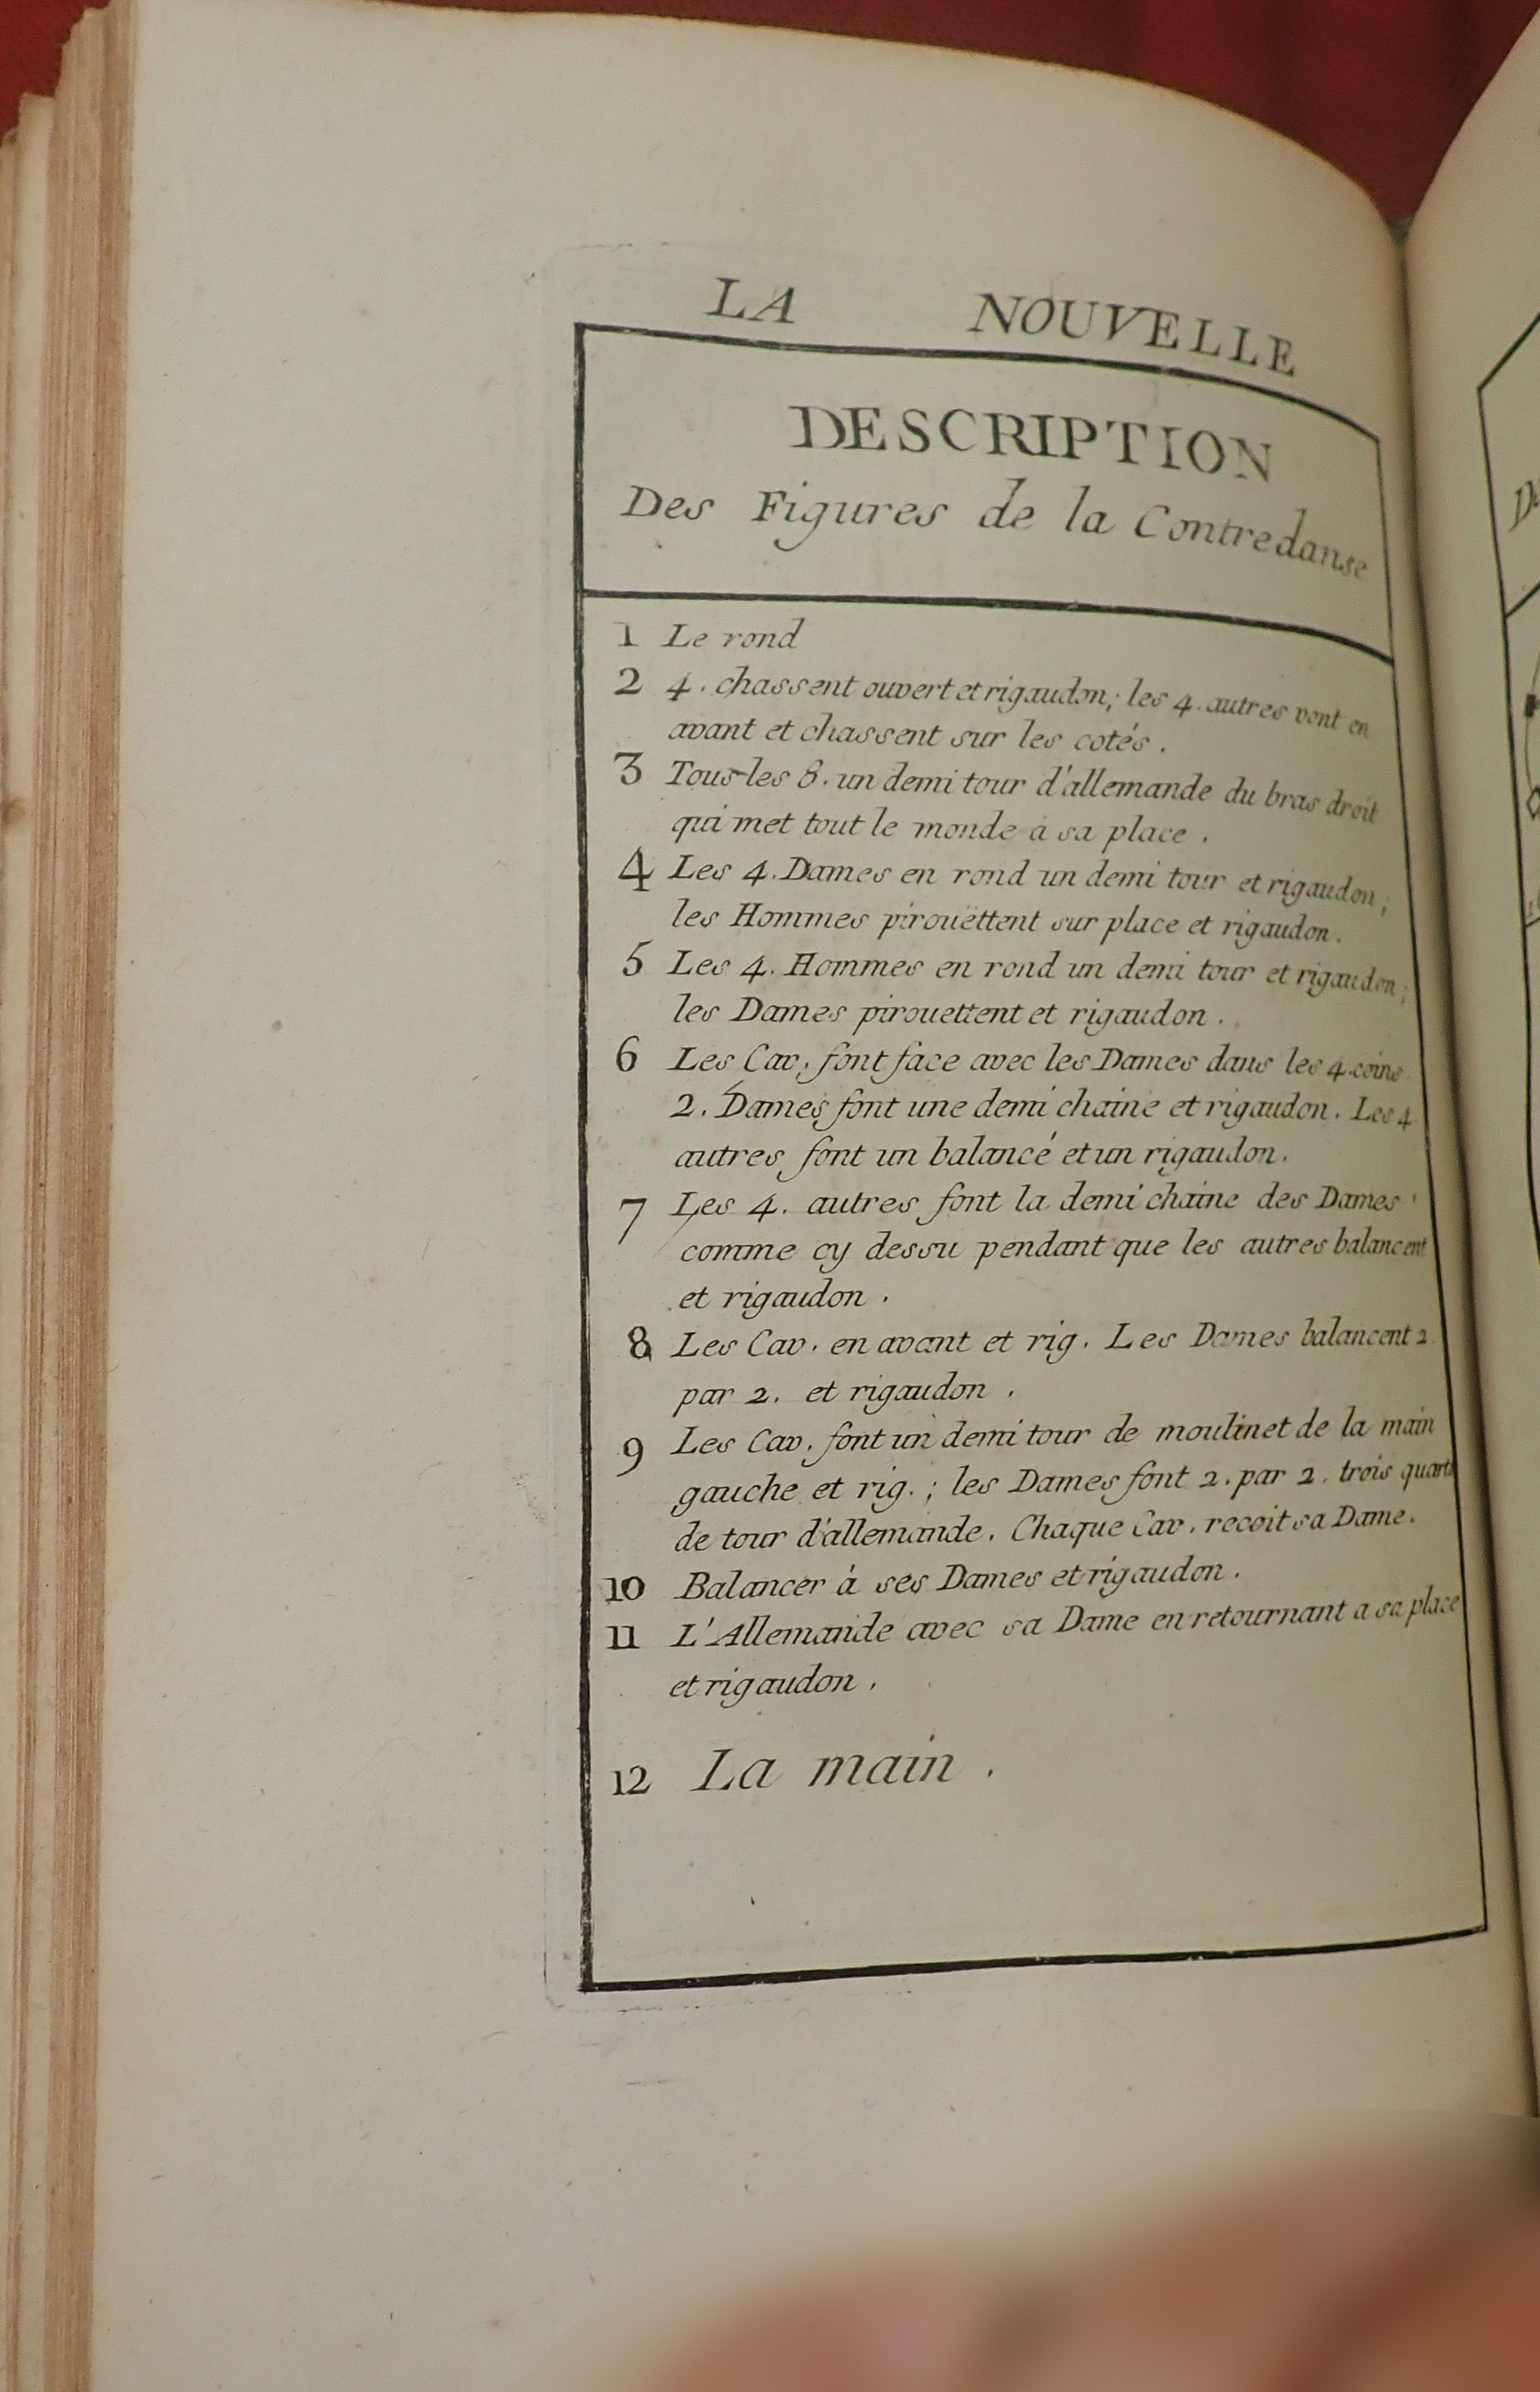 LA NOUVELLE
DESCRIPTION
Des Figures de la Contredanse
1 Le rond
2 4. chassent ouvert et rigaudon; les 4. autres vont en
avant et chassent sur les cotés.
3 Tous les 8. un demi tour d'allemande du bras droit
qui met tout le monde à sa place.
4 Les 4. Dames en rond un demi tour et rigaudon;
les Hommes pirouëttent sur place et rigaudon.
5 Les 4. Hommes en rond un demi tour et rigaudon;
les Dames pirouettent et rigaudon.
6 Les Cav. font face avec les Dames dans les 4. coins
2. Dames font une demi chaine et rigaudon. Les 4
autres font un balancé et un rigaudon.
7 Les 4. autres font la demi chaine des Dames
comme cy dessu pendant que les autres balancent
et rigaudon.
8 Les Cav. en avant et rig. Les Dames balancent 2
par 2. et rigaudon.
9 Les Cav. font un demi tour de moulinet de la main
gauche et rig.; les Dames font 2. par 2. trois quarts
de tour d'allemande. Chaque Cav. recoit sa Dame.
10 Balancer à ses Dames et rigaudon.
11 L'Allemande avec sa Dame en retournant a sa place
et rigaudon.
12 La main.